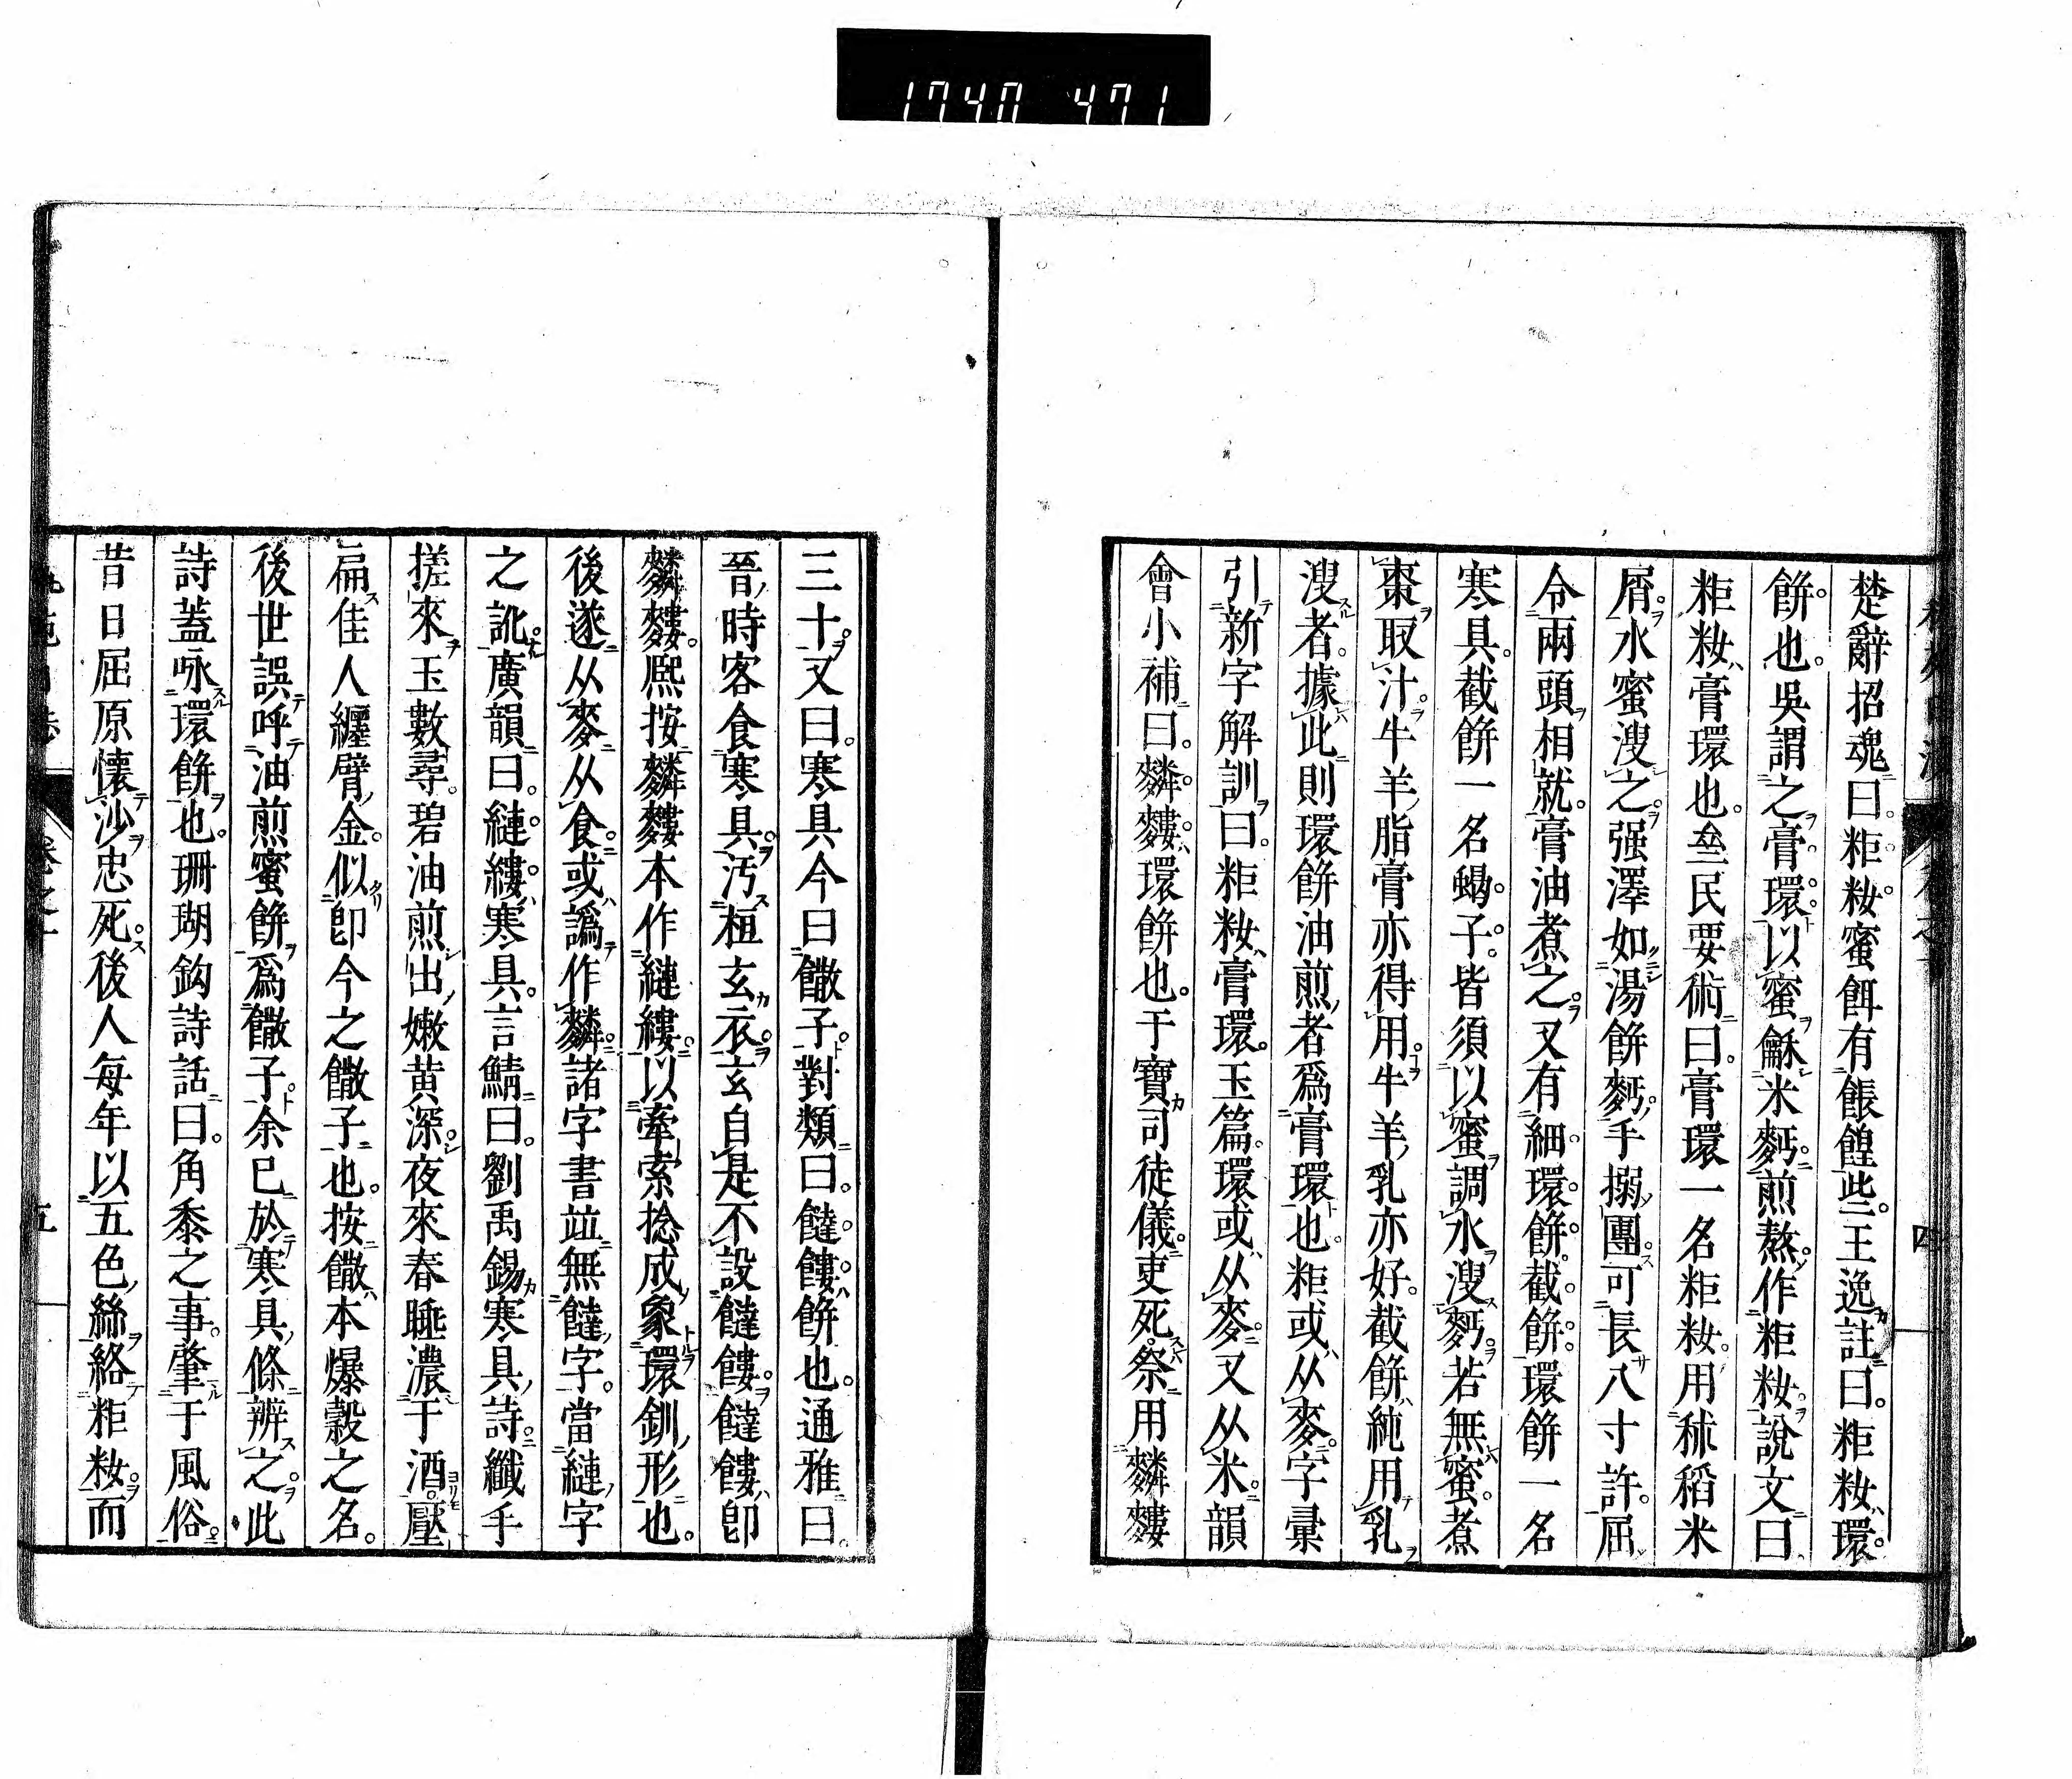 1740 471
楚辭招魂曰粔籹蜜餌有餦餭些王逸註曰粔籹環
餅也吳謂之膏環以蜜龢米麪煎熬作粔籹說文曰
粔籹膏環也坴民要術曰膏環一名粔籹用秫稻米
屑水蜜溲之强澤如湯餅麪手搦團可長八寸許屈
令兩頭相就膏油煮之又有細環餅截餅環餅一名
寒具截餅一名蝎子皆須以蜜調水溲麪若無蜜煮
棗取汁牛羊脂膏亦得用牛羊乳亦好截餅純用乳
溲者據此則環餅油煎者爲膏環也粔或从麥字彙
引新字解訓曰粔籹膏環玉篇環或从麥又从米韻
會小補曰䴶䴷環餅也于寶司徒儀吏死祭用䴶䴷
四
三十又曰寒具今曰饊子對類曰饐餿餅也通雅曰
晉時客食寒具汚桓玄衣玄自是不設䭞餿䭞餿卽
䴶䴷熙按䴶䴷本作縺縷以牽索捻成象環釧形也
後遂从麥从食或譌作䴶諸字書竝無䭞字當縺字
之訛廣韻曰縺縷寒具言鯖曰劉禹錫寒具詩纖手
搓來玉數尋碧油煎出嫩黄深夜來春睡濃于酒壓
扁佳人纏臂金似卽今之饊子也按饊本爆穀之名
後世誤呼油煎蜜餅爲饊子余已於寒具條辨之此
詩蓋咏環餅也珊瑚鈎詩話曰角黍之事肇于風俗
昔日屈原懷沙忠死後人每年以五色絲絡粔籹而
五